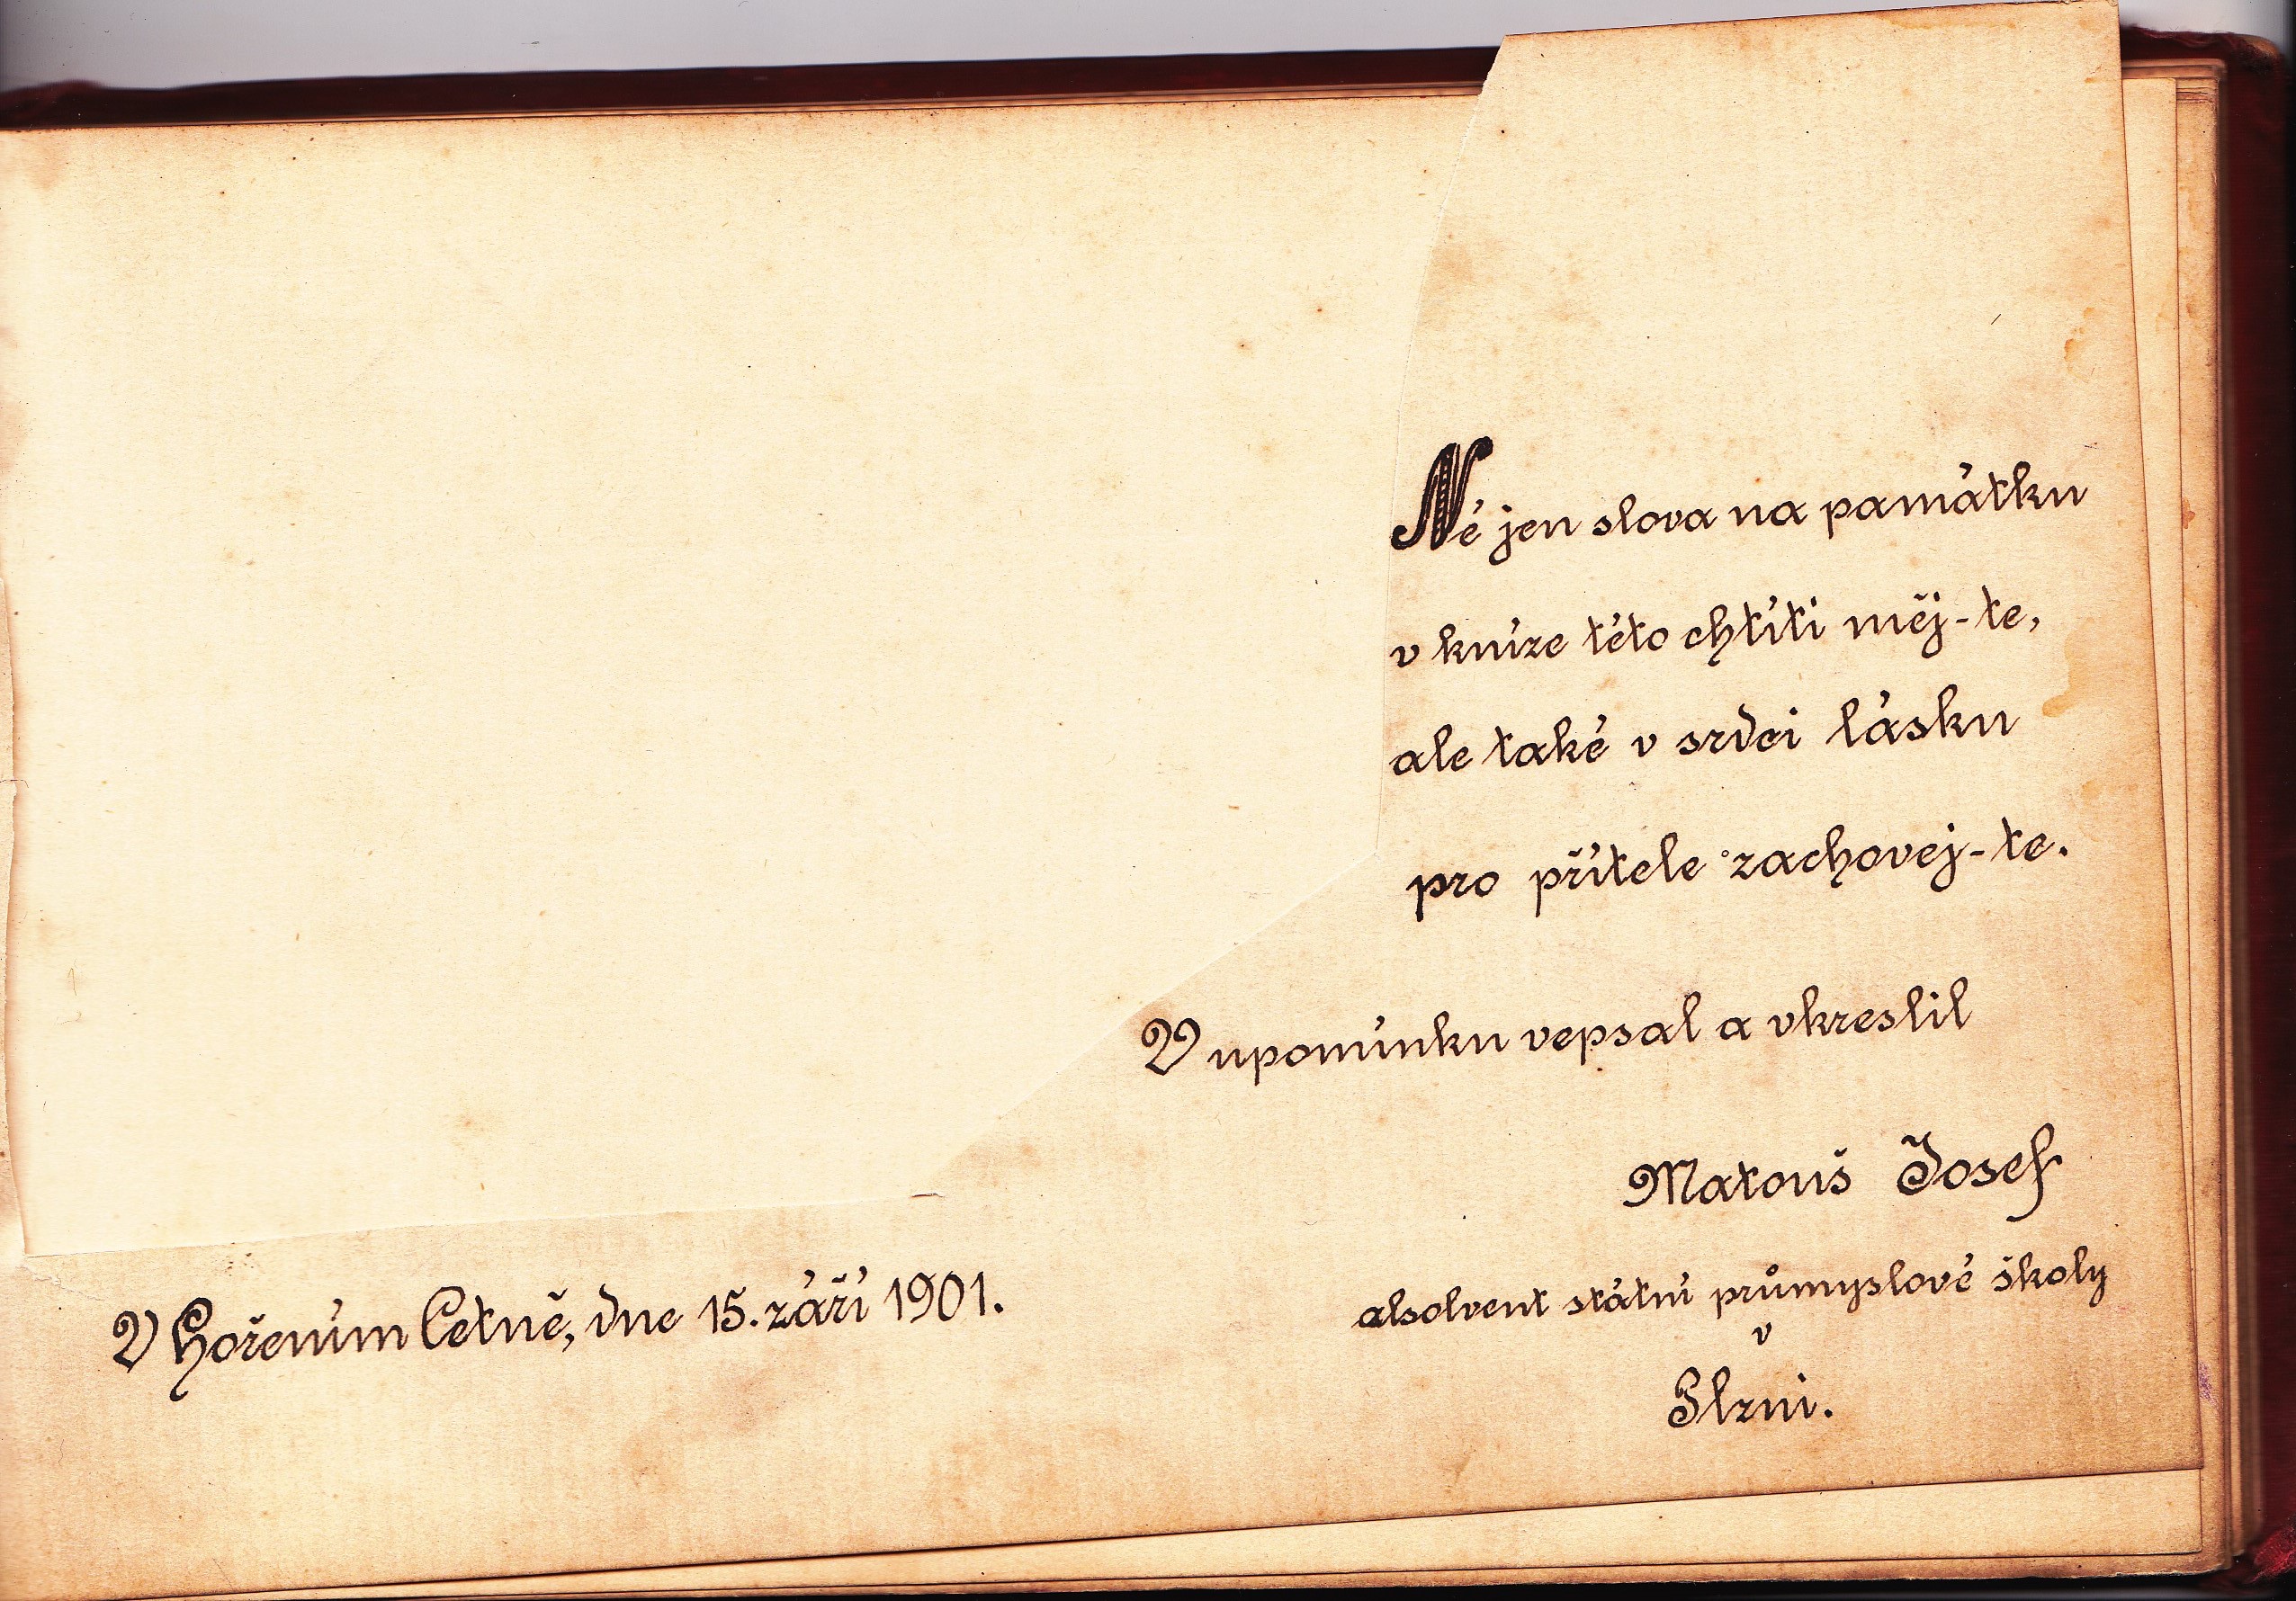 Né jen slova na památku
v kníze této chtíti měj-te,
ale také v srdci lásku
pro přítele zachovej-te.
V upomínku vepsal a vkreslil
Matouš Josef
absolvent státní průmyslové školy
v
Plzni.
V Hořením Cetně, dne 15. září 1901.